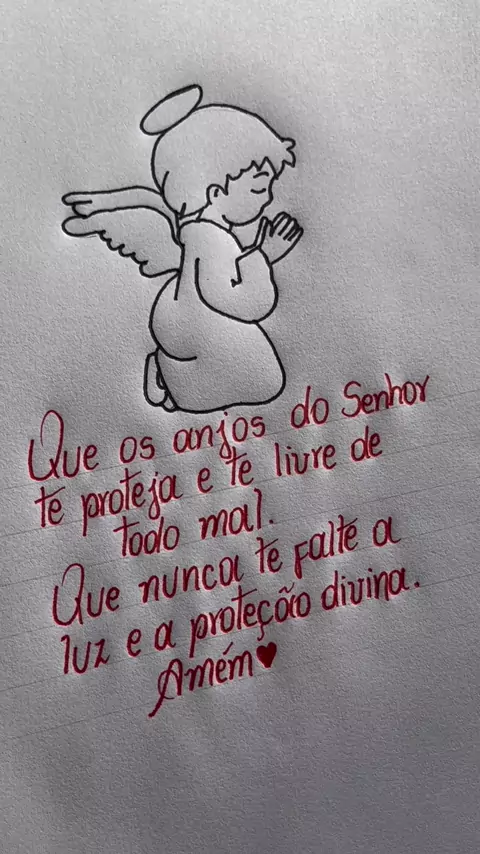 Que os anjos do Senhor
te proteja e te livre de
todo mal.
Que nunca te falte a
luz e a proteção divina.
Amém♥